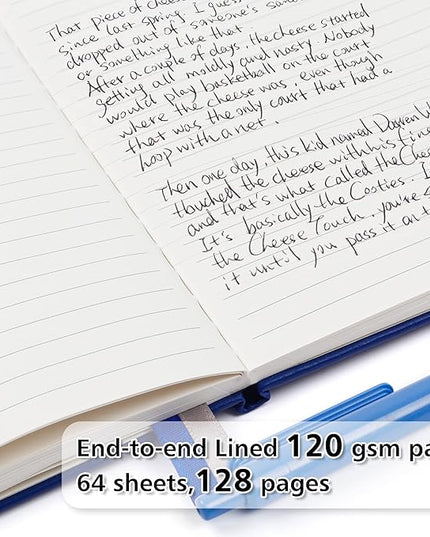 That piece of chees
since last spring, I guess
dropped out of someone's san
or something like that
After a couple of days, the cheese started
getting all moldly and nasty. Nobody
would play basketball on the court
where the cheese was, even though
that was the only court that had a
hoop with a net.
Then one day, this kid named Darren W
touched the cheese with his fing
and that's what called the Chees
It's basically the Cooties. I
the Cheese Touch, you're s
it until you pass it on t
End-to-end Lined 120 gsm pa
64 sheets,128 pages